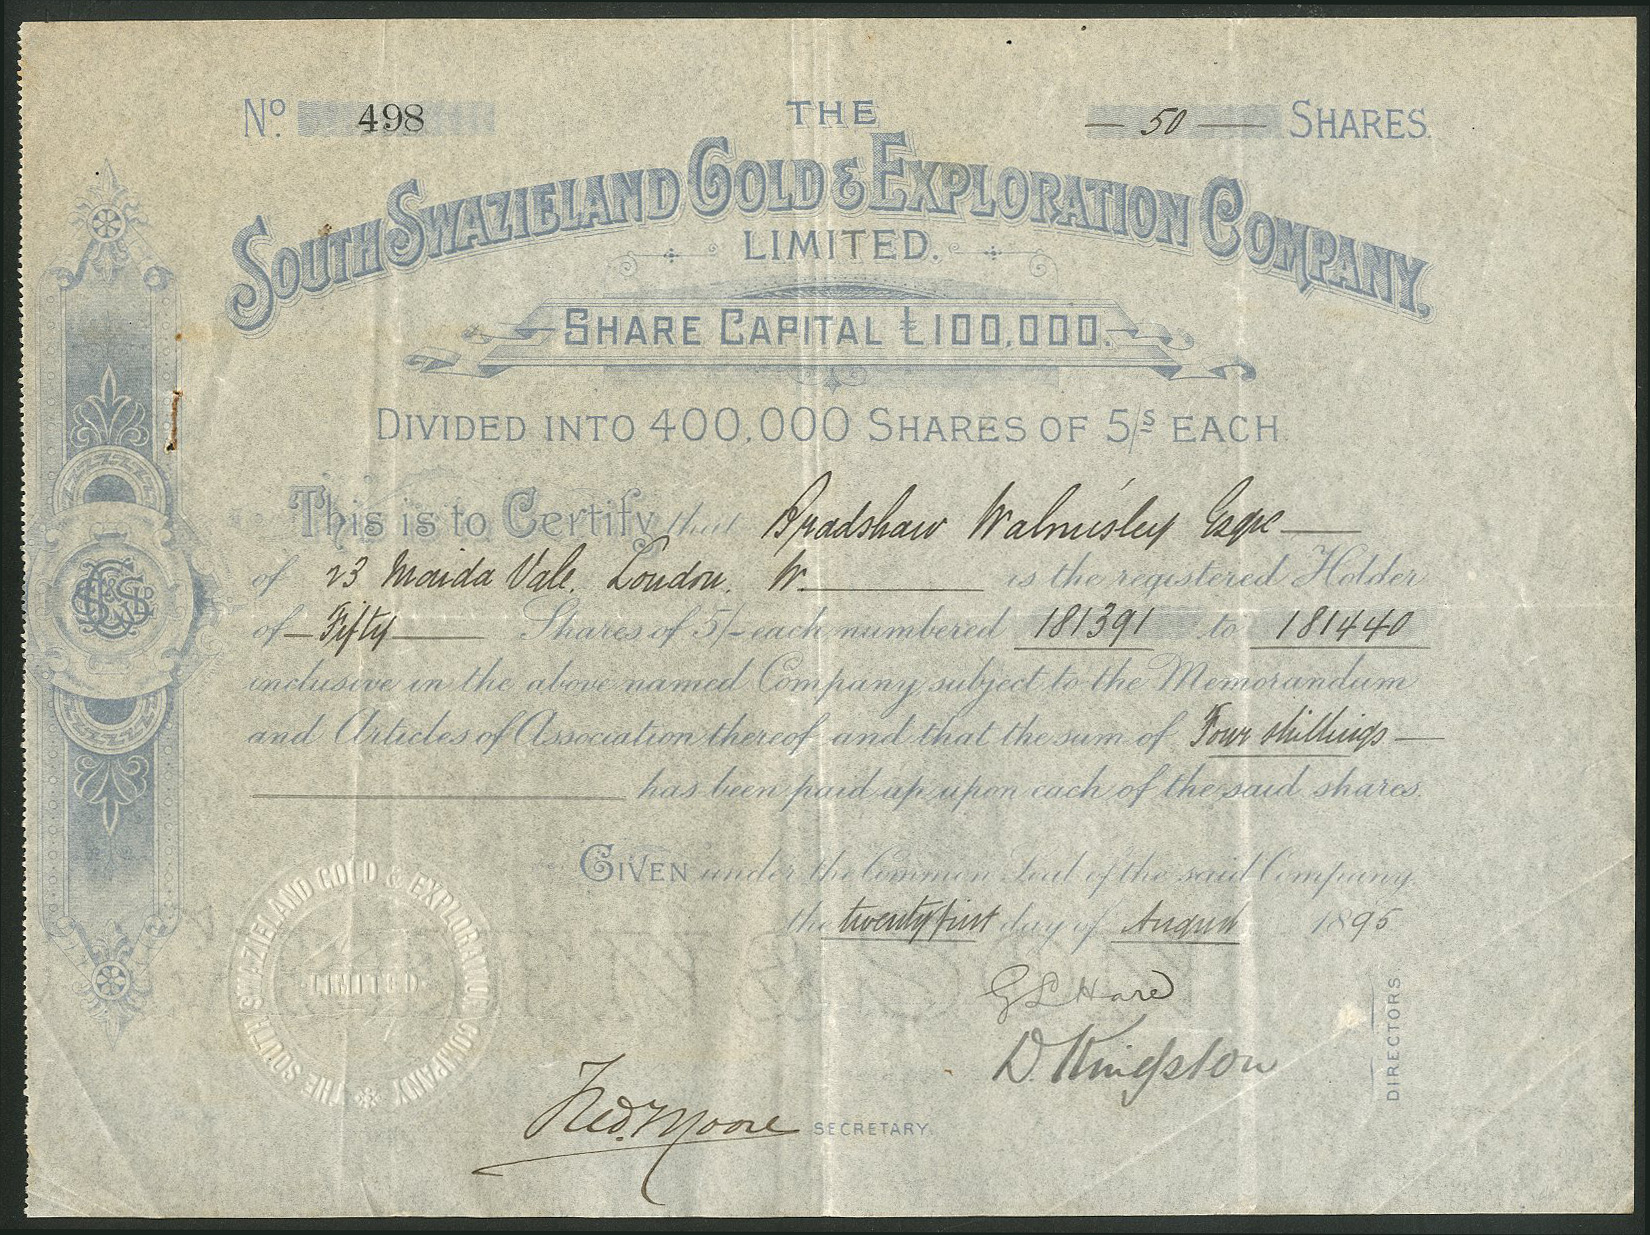 No. 498
THE
— 50 — SHARES.
SOUTH SWAZIELAND GOLD & EXPLORATION COMPANY.
LIMITED.
SHARE CAPITAL £100,000.
DIVIDED INTO 400,000 SHARES OF 5/s EACH.
This is to Certify that Bradshaw Walmisley Esqre
of 23 Maida Vale, London, W. is the registered Holder
of Fifty Shares of 5/- each numbered 181391 to 181440
inclusive in the above named Company, subject to the Memorandum
and Articles of Association thereof and that the sum of Four shillings
has been paid up upon each of the said shares.
GIVEN under the Common Seal of the said Company
the twenty first day of August 1895
G L Hare
D. Kingston
DIRECTORS
Fred. Moore SECRETARY.
THE SOUTH SWAZIELAND GOLD & EXPLORATION COMPANY
LIMITED